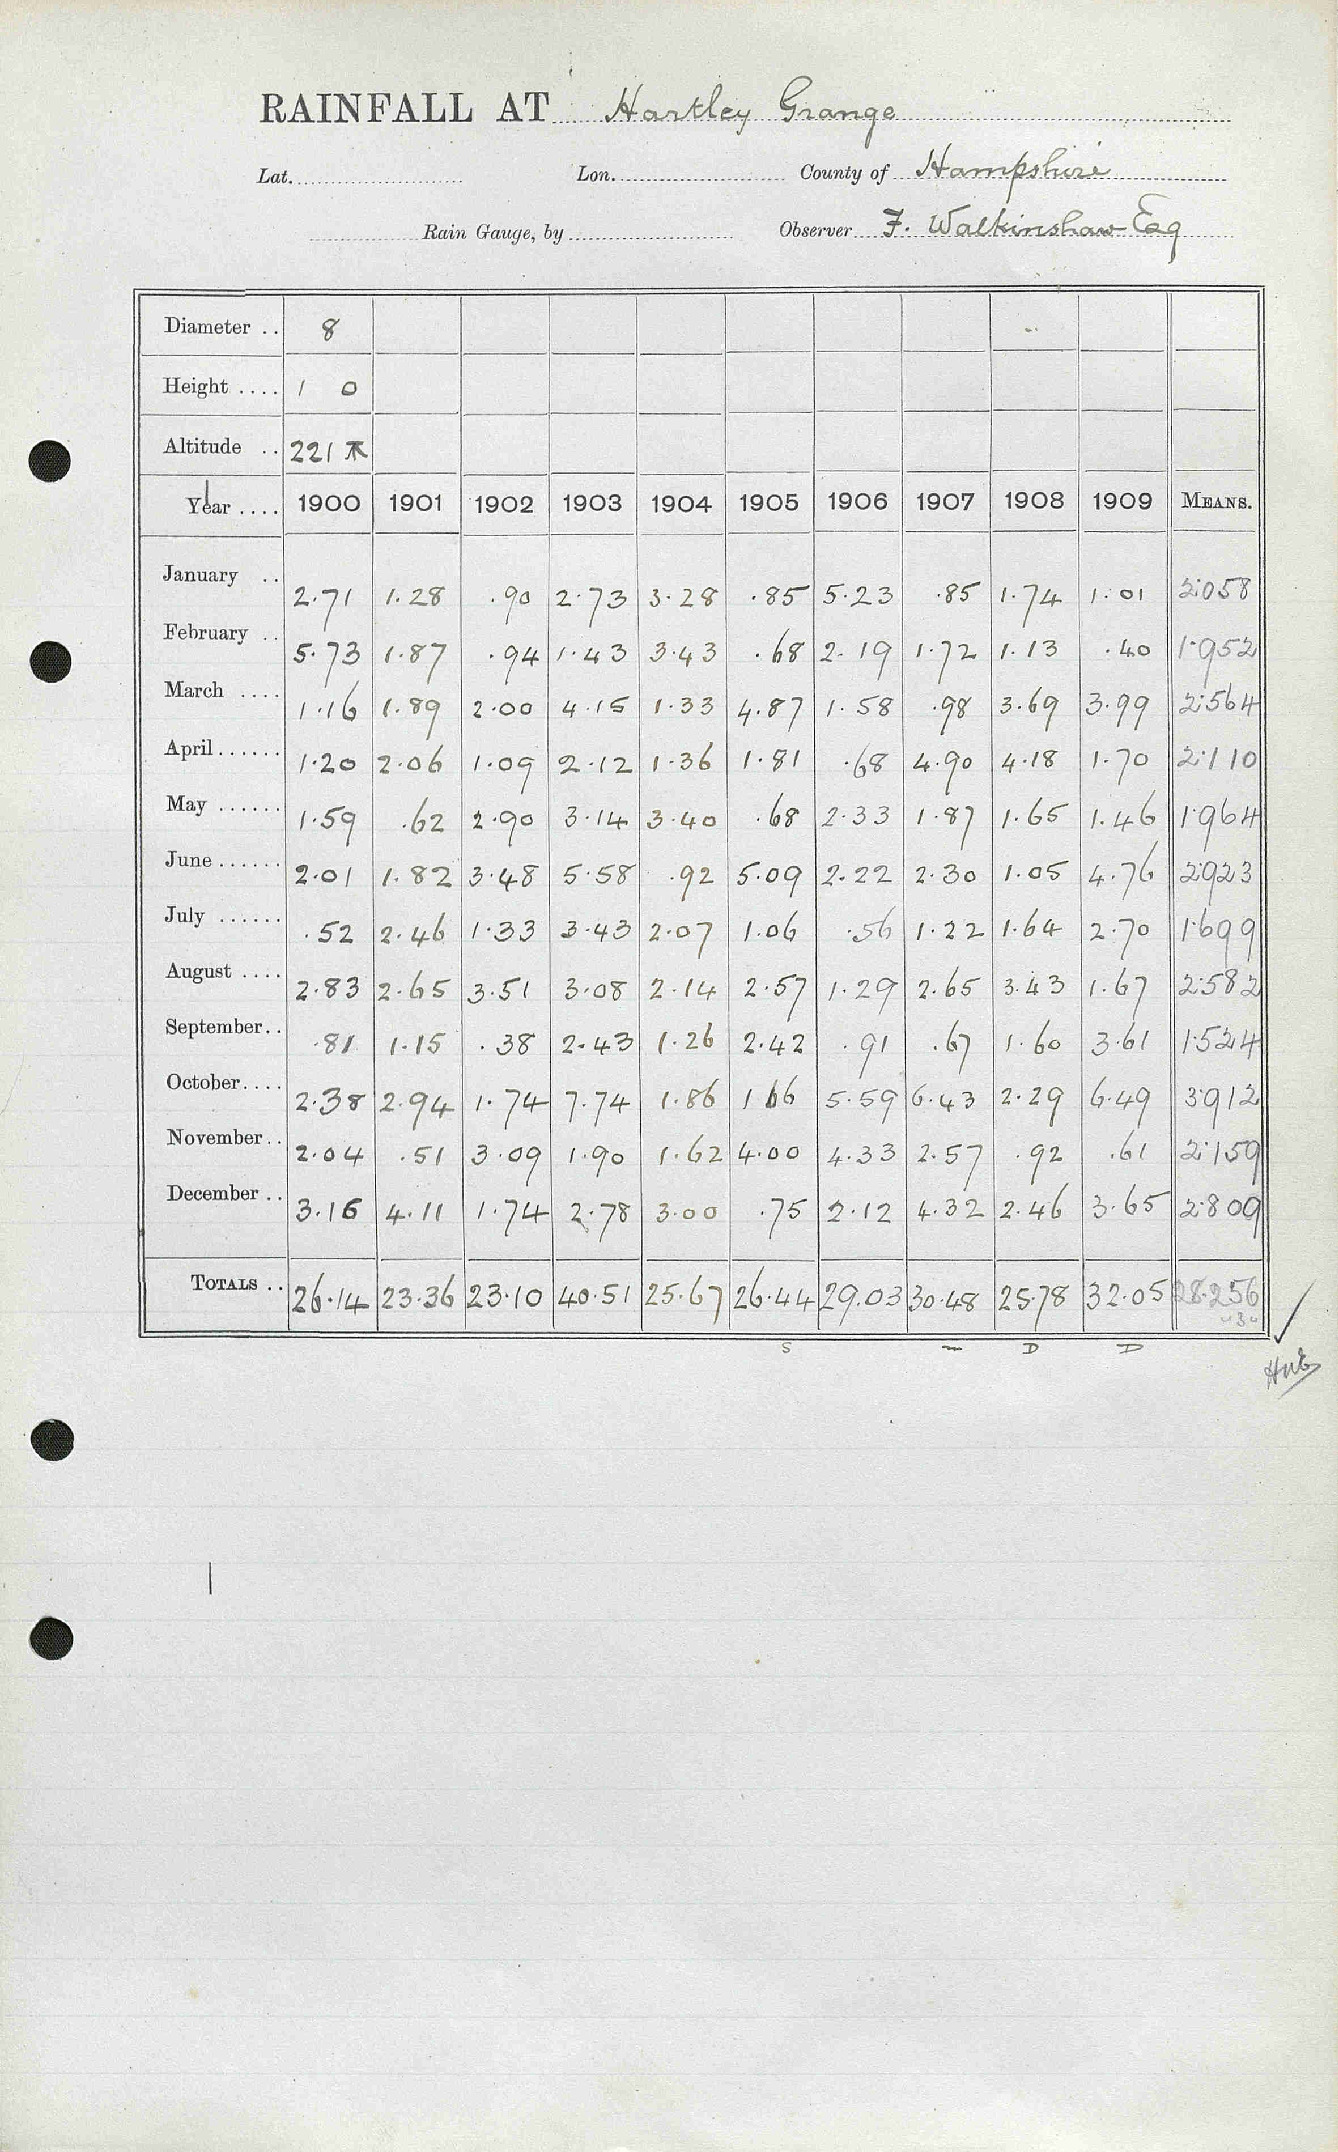 RAINFALL AT Hartley Grange
Lat. Lon. County of Hampshire
Rain Gauge, by Observer F. Walkinshaw Esq
Diameter .. 8
Height .... 1 0
Altitude .. 221
Year .... 1900 1901 1902 1903 1904 1905 1906 1907 1908 1909 MEANS.
January .. 2.71 1.28 .90 2.73 3.28 .85 5.23 .85 1.74 1.01 2.058
February .. 5.73 1.87 .94 1.43 3.43 .68 2.19 1.72 1.13 .40 1.952
March .... 1.16 1.89 2.00 4.15 1.33 4.87 1.58 .98 3.69 3.99 2.564
April...... 1.20 2.06 1.09 2.12 1.36 1.81 .68 4.90 4.18 1.70 2.110
May ...... 1.59 .62 2.90 3.14 3.40 .68 2.33 1.87 1.65 1.46 1.964
June...... 2.01 1.82 3.48 5.58 .92 5.09 2.22 2.30 1.05 4.76 2.923
July ...... .52 2.46 1.33 3.43 2.07 1.06 .56 1.22 1.64 2.70 1.699
August .... 2.83 2.65 3.51 3.08 2.14 2.57 1.29 2.65 3.43 1.67 2.582
September.. .81 1.15 .38 2.43 1.26 2.42 .91 .67 1.60 3.61 1.524
October.... 2.38 2.94 1.74 7.74 1.86 1 66 5.59 6.43 2.29 6.49 3.912
November.. 2.04 .51 3.09 1.90 1.62 4.00 4.33 2.57 .92 .61 2.159
December .. 3.16 4.11 1.74 2.78 3.00 .75 2.12 4.32 2.46 3.65 2.809
TOTALS .. 26.14 23.36 23.10 40.51 25.67 26.44 29.03 30.48 25.78 32.05 28.256
S D D